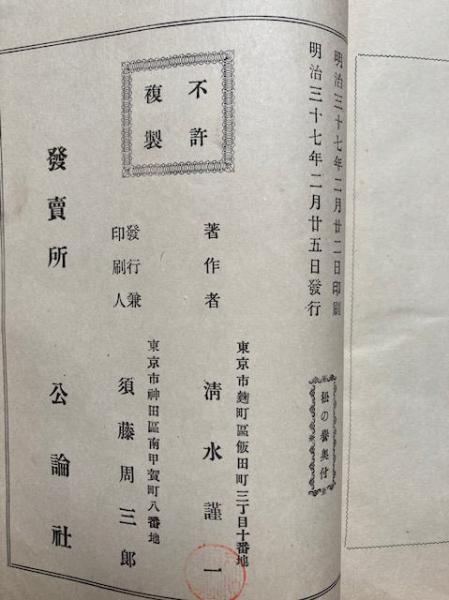 明治三十七年二月廿二日印刷
明治三十七年二月廿五日發行
の譽奥付
不許
複製
著作者
東京市麴町區飯田町三丁目十番地
淸水謹一
發行兼
印刷人
東京市神田區南甲賀町八番地
須藤周三郎
發賣所 公論社